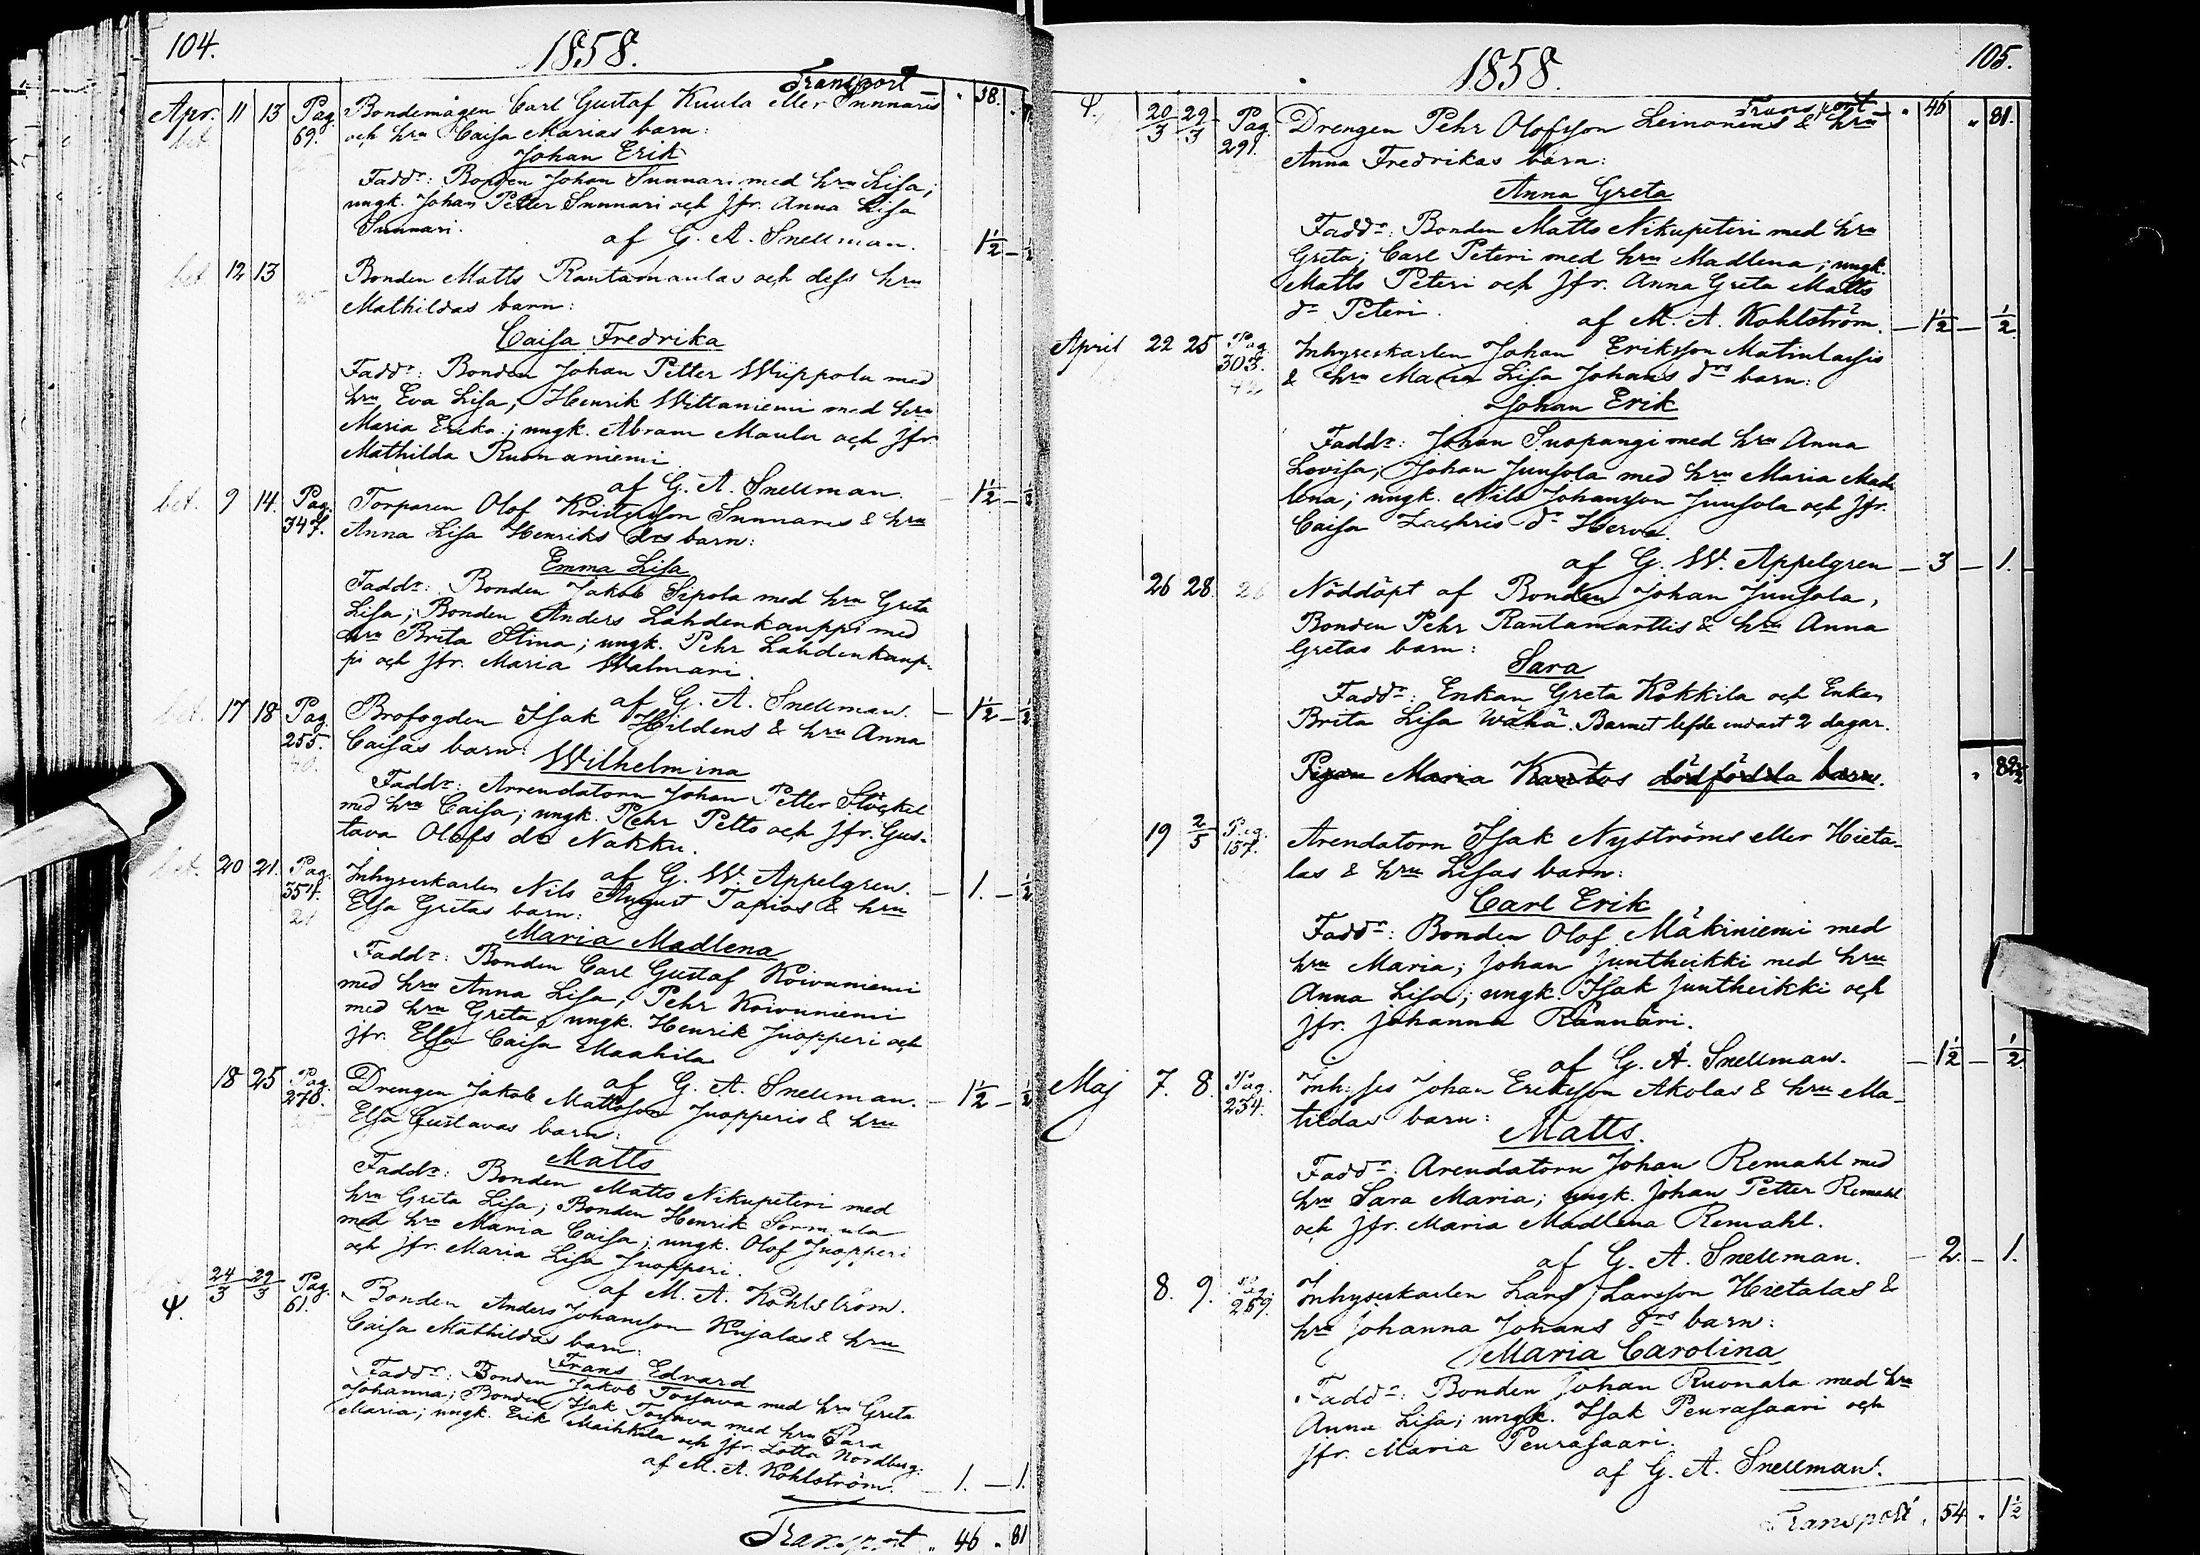 104.
1858.
Transport
38.
Apr. 11 13 Pag. 69.
bet.
Bondemågen Carl Gustaf Kuula eller Sunnaris
och hru Caisa Marias barn:
Johan Erik
Faddr: Bonden Johan Sunnari med hru Lisa;
ungk. Johan Petter Sunnari och jfr. Anna Lisa
Sunnari.
af G. A. Snellman. 1½ – ½
bet. 12 13
Bonden Matts Rautamaulas och dess hru
Mathildas barn:
Caisa Fredrika
Faddr: Bonden Johan Petter Wiippola med
hru Eva Lisa; Henrik Wittaniemi med hru
Maria Erika; ungk. Abram Maula och jfr
Mathilda Ruonaniemi
af G. A. Snellman. – 1½ – ½
bet. 9 14. Pag. 347.
Torparen Olof Kristersson Sunnaris & hru
Anna Lisa Henriks drs barn:
Emma Lisa
Faddr: Bonden Jakob Sipola med hru Greta
Lisa; Bonden Anders Lahdenkauppi med
hru Brita Stina; ungk. Pehr Lahdenkaup-
pi och jfr. Maria Walmari.
af G. A. Snellman. – 1½ – ½
bet. 17 18 Pag. 255.
Brofogden Isak Hildens & hru Anna
Caisas barn: Wilhelmina
Faddr: Arrendatorn Johan Petter Stöckel
med hru Caisa; ungk. Pehr Petts och jfr. Gus-
tava Olofs dr Nakku.
af G. W. Appelgren. – 1. – ½
bet. 20 21. Pag. 354.
Inhyseskarlen Nils August Tapios & hru
Elsa Gretas barn:
Maria Madlena
Faddr: Bonden Carl Gustaf Koivuniemi
med hru Anna Lisa; Pehr Koivuniemi
med hru Greta; ungk. Henrik Juopperi och
jfr. Elsa Caisa Maahila
af G. A. Snellman. – 1½ – ½
18 25 Pag. 278.
Drengen Jakob Mattsson Juopperis & hru
Elsa Gustavas barn:
Matts
Faddr: Bonden Matts Nikupeteri med
hru Greta Lisa; Bonden Henrik Sormula
med hru Maria Caisa; ungk. Olof Juopperi
och jfr. Maria Lisa Juopperi.
af M. A. Kohlström.
Ψ. 24/3 29/3 Pag. 61.
Bonden Anders Johansson Kujalas & hru
Caisa Mathildas barn:
Frans Edvard
Faddr: Bonden Jakob Torvava med hru Greta
Johanna; Bonden Isak Torvava med hru Sara
Maria; ungk. Erik Maihkila och jfr. Lotta Nordberg.
af M. A. Kohlström. – 1. – 1.
Transport . 46 . 81
1858.
105.
Transport – . 46 . 81.
Ψ. 20/3 29/3 Pag. 291.
Drengen Pehr Olofsson Leinonens & hru
Anna Fredrikas barn:
Anna Greta
Faddr: Bonden Matts Nikupeteri med hru
Greta; Carl Peteri med hru Madlena; ungk.
Matts Peteri och jfr. Anna Greta Matts
dr Peteri.
af M. A. Kohlström. – 1½ – ½
April 22 25 Pag. 303.
Inhyseskarlen Johan Eriksson Matinlassis
& hru Maria Lisa Johans drs barn:
Johan Erik
Faddr: Johan Suopangi med hru Anna
Lovisa; Johan Junsola med hru Maria Mad-
lena; ungk. Nils Johansson Junsola och jfr.
Caisa Zachris dr Herva.
af G. W. Appelgren – 3 – 1.
26 28
Nöddöpt af Bonden Johan Junsola,
Bonden Pehr Rautamarttis & hru Anna
Gretas barn:
Sara
Faddr: Enkan Greta Kokkila och Enkan
Brita Lisa Wähä. Barnet lefde endast 2 dagar.
Pigan Maria Kantos dödfödda barn.
. 82½
19 2/5 Pag. 157.
Arendatorn Isak Nyströms eller Hieta-
las & hru Lisas barn:
Carl Erik
Faddr: Bonden Olof Mäkiniemi med
hru Maria; Johan Juntheikki med hru
Anna Lisa; ungk. Isak Juntheikki och
jfr. Johanna Rannäri.
af G. A. Snellman. – 1½ – ½
Maj 7. 8. Pag. 234.
Inhyses Johan Eriksson Akolas & hru Ma-
tildas barn:
Matts.
Faddr: Arendatorn Johan Remahl med
hru Sara Maria; ungk. Johan Petter Remahl
och jfr. Maria Madlena Remahl.
af G. A. Snellman. – 2. – 1.
8. 9. Pag. 269.
Inhyseskarlen Lars Larsson Hietalas &
hru Johanna Johans drs barn:
Maria Carolina
Faddr: Bonden Johan Ruonala med hru
Anna Lisa; ungk. Isak Peurasaari och
jfr. Maria Peurasaari.
af G. A. Snellman.
Transport . 54 . 1½